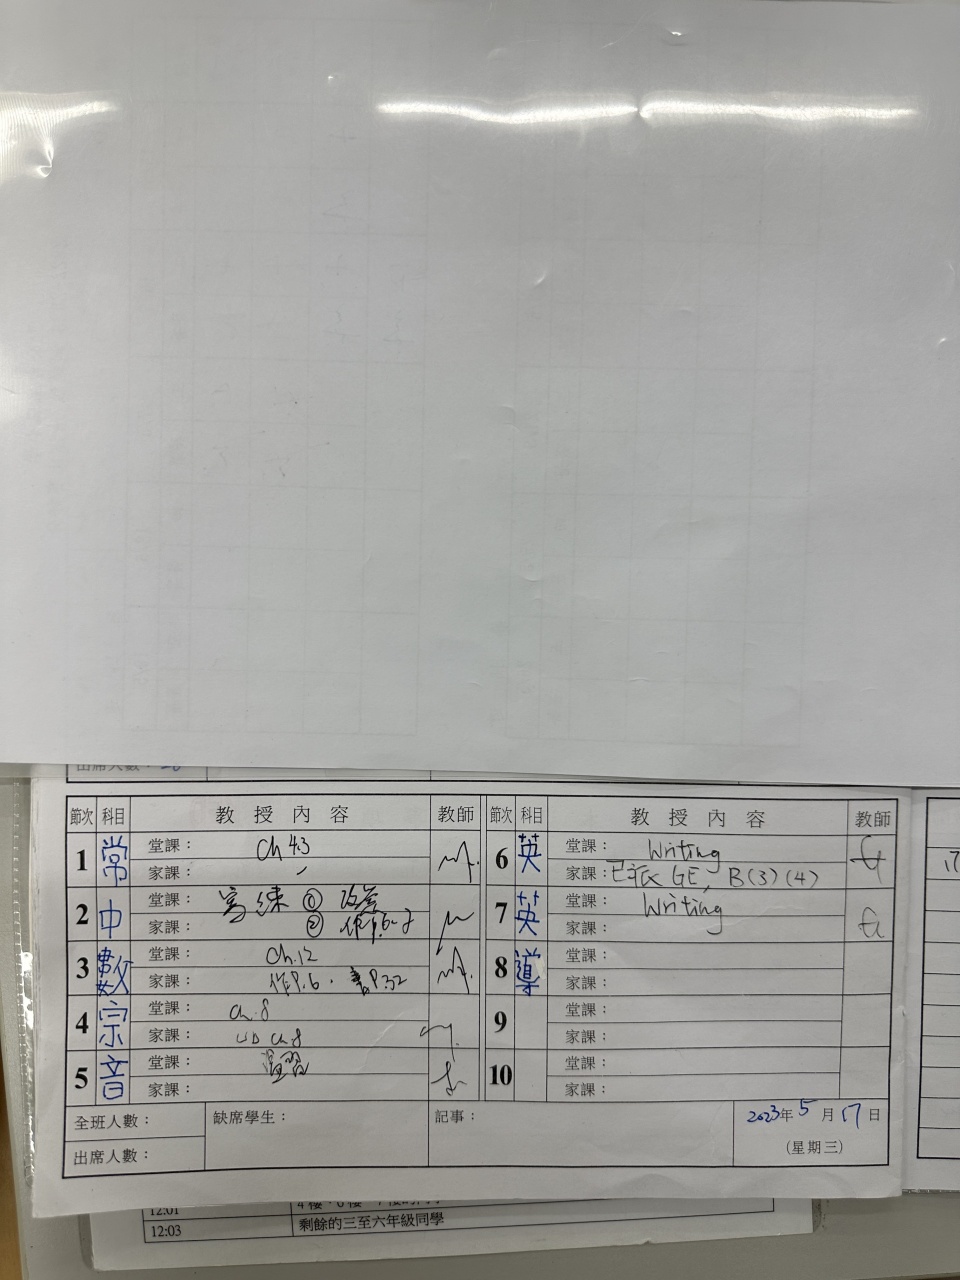 出席人數：
節次 科目 教授內容 教師
1 常 堂課： Ch 4.3
家課：
2 中 堂課： 寫練 ① 改卷
家課： ②
3 數 堂課： Ch.12
家課： 作P.6. 書P.32
4 宗 堂課： Ch.8
家課： Ch8
5 音 堂課： 溫習
家課：
節次 科目 教授內容 教師
6 英 堂課： Writing
家課： 已派 GE, B(3)(4)
7 英 堂課： Writing
家課：
8 導 堂課：
家課：
9 堂課：
家課：
10 堂課：
家課：
全班人數： 缺席學生： 記事： 2023年 5月 17日
出席人數： (星期三)
12:01
12:03 剩餘的三至六年級同學